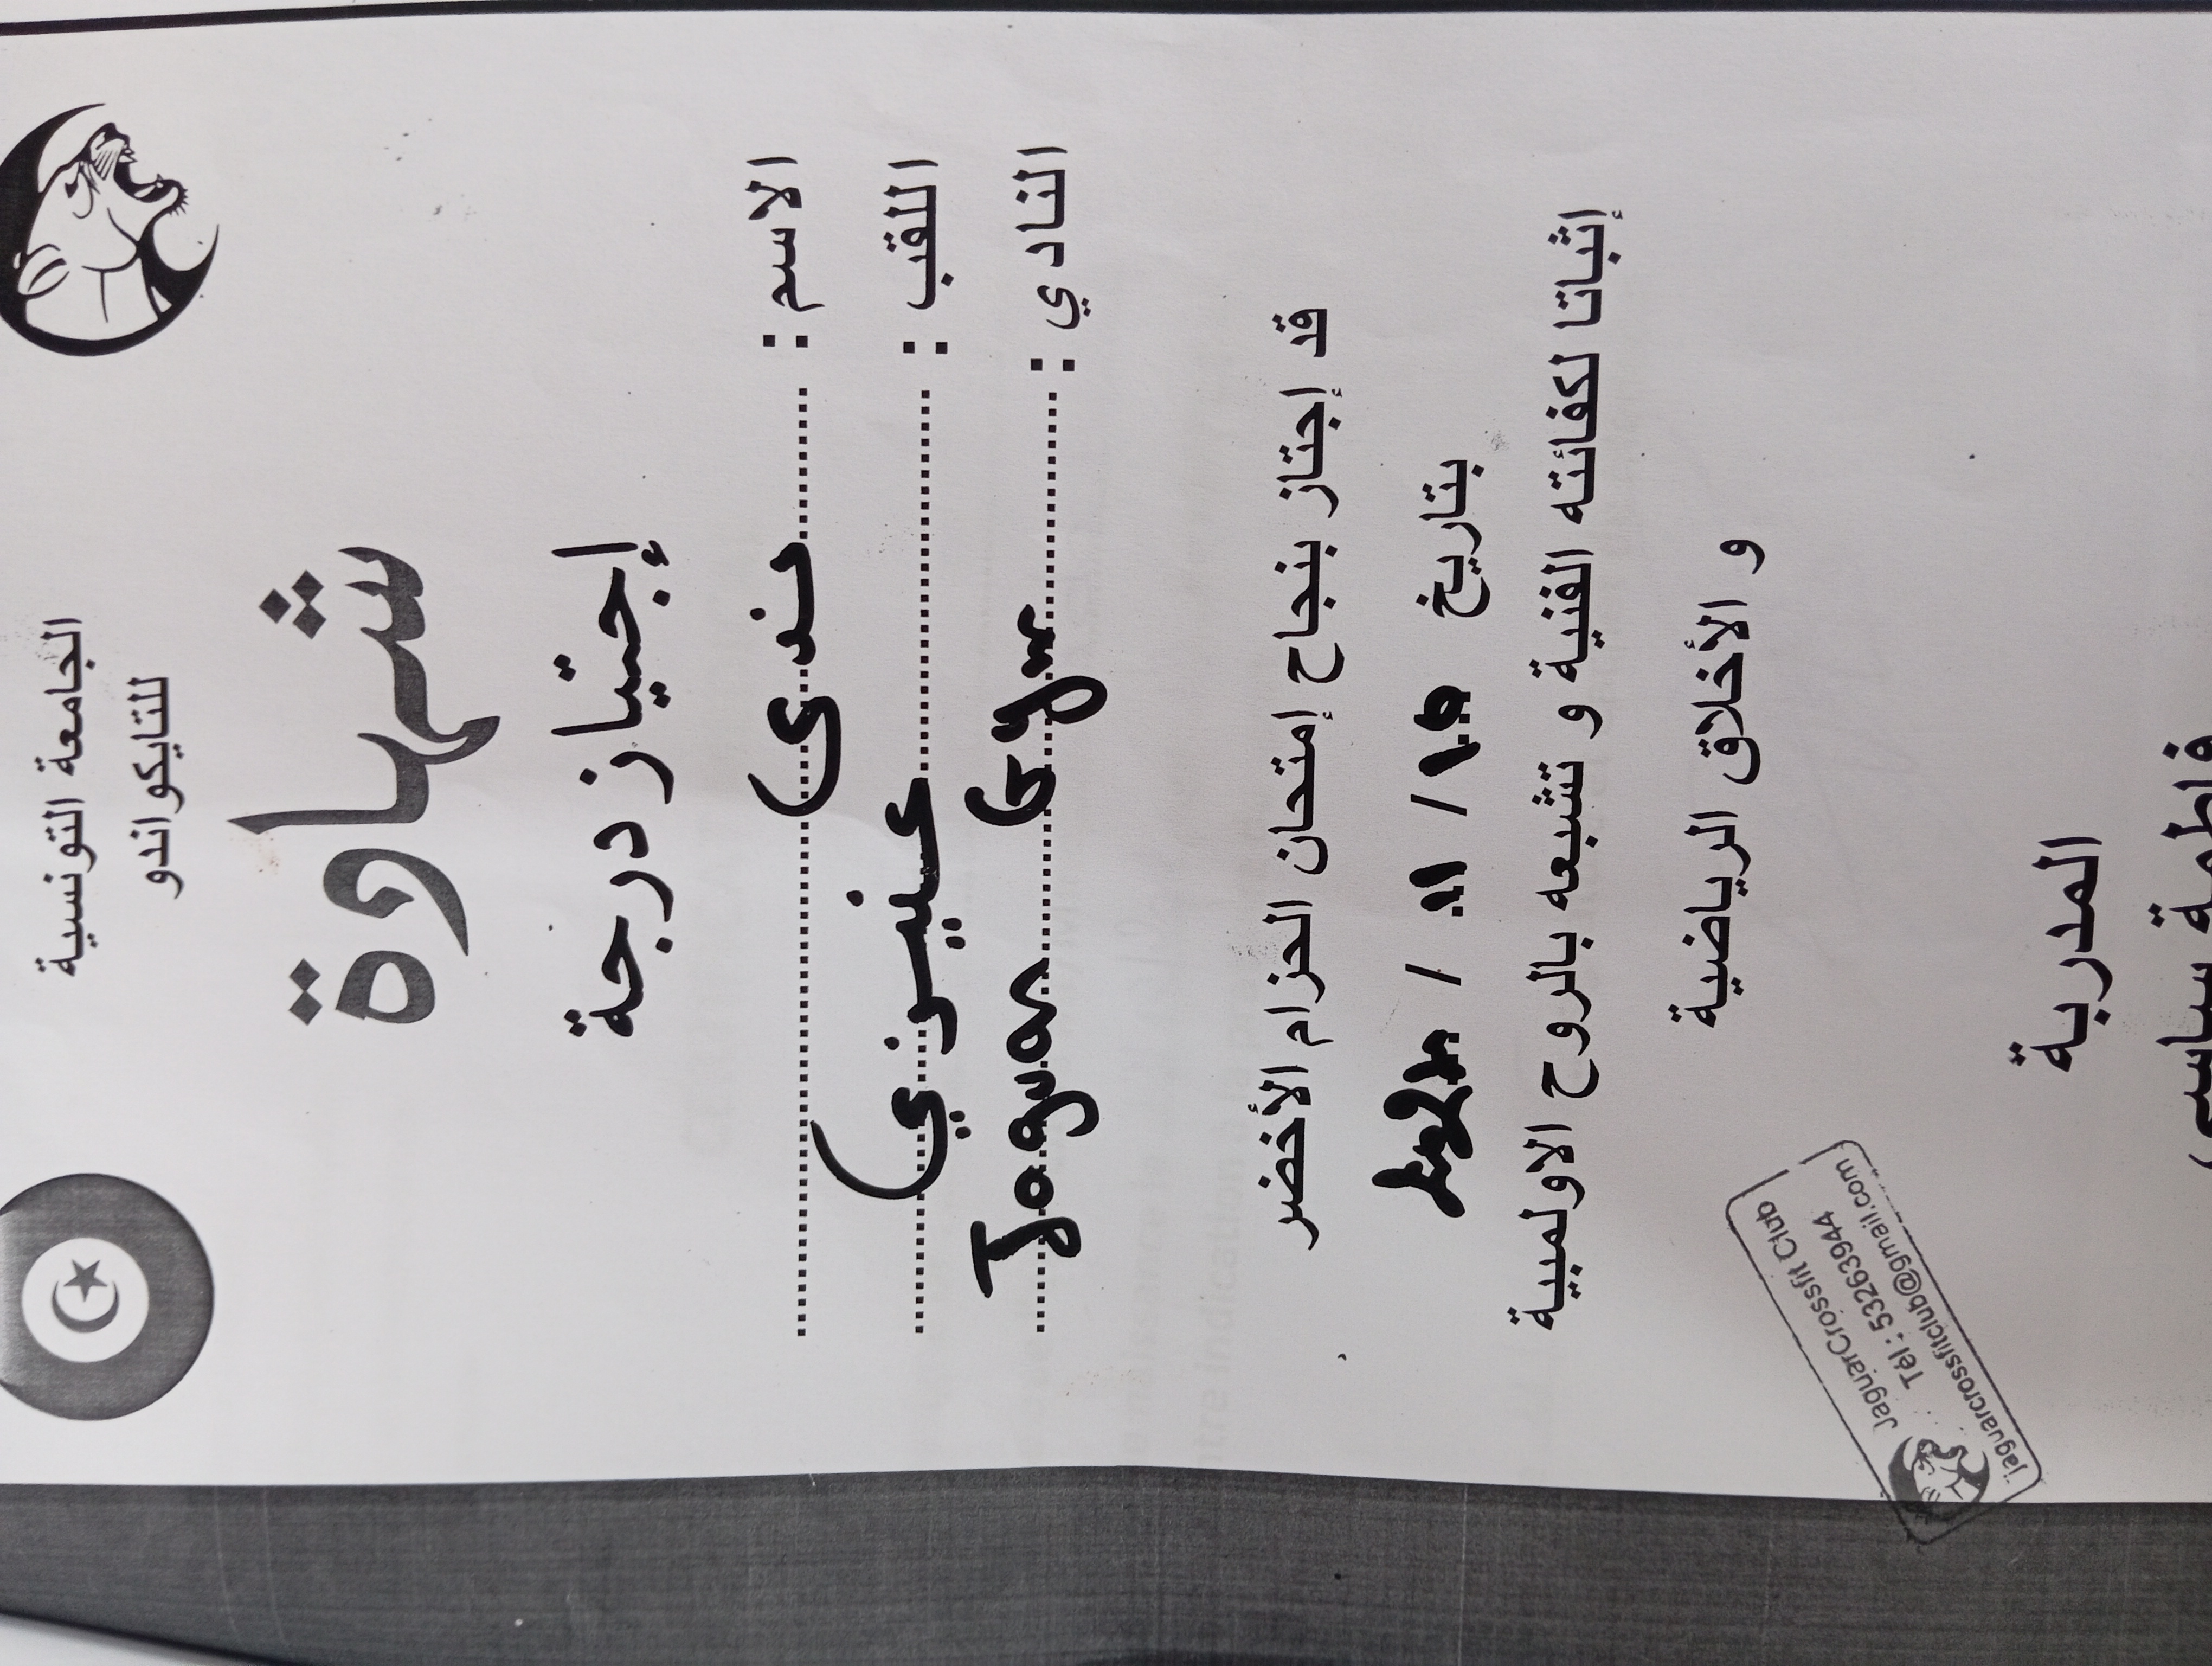 الجامعة التونسية
للتايكواندو
شهادة
إجتياز درجة
الاسم : ندى
اللقب : عنيزي
النادي : Jaguar Gym
قد إجتاز بنجاح إمتحان الحزام الأخضر
بتاريخ / 11 /
إثباتا لكفائته الفنية و تشبعه بالروح الاولمبية
و الأخلاق الرياضية
المدربة
فاطمة ساسي
JaguarCrossfit Club
Tél : 53263944
jaguarcrossfitclub@gmail.com